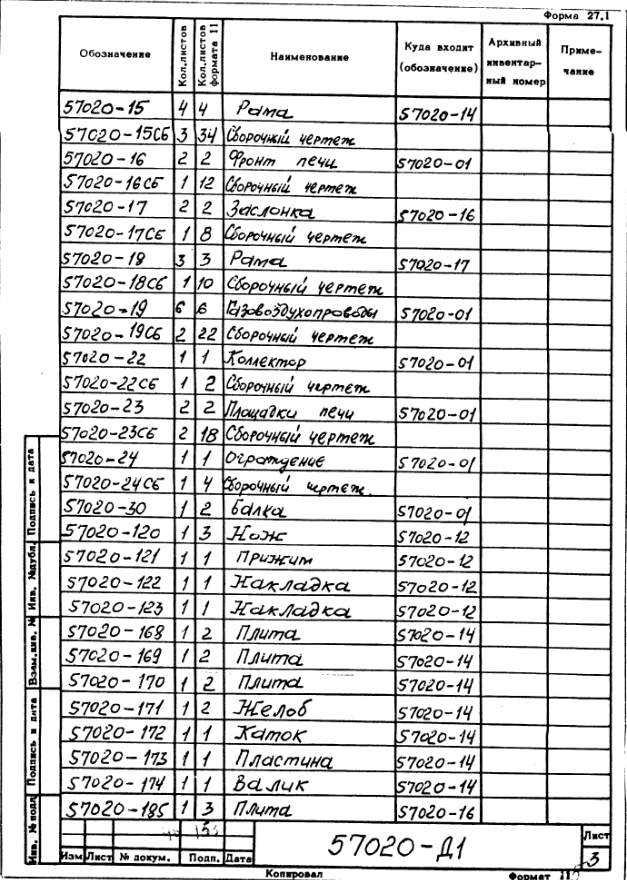 Форма 27.1
Обозначение Кол.листов Кол.листов формата 11 Наименование Куда входит (обозначение) Архивный инвентарный номер Примечание
57020-15 4 4 Рама 57020-14
57020-15СБ 3 34 Сборочный чертеж
57020-16 2 2 Фронт печи 57020-01
57020-16СБ 1 12 Сборочный чертеж
57020-17 2 2 Заслонка 57020-16
57020-17СБ 1 8 Сборочный чертеж
57020-18 3 3 Рама 57020-17
57020-18СБ 1 10 Сборочный чертеж
57020-19 6 6 Газовоздухопроводы 57020-01
57020-19СБ 2 22 Сборочный чертеж
57020-22 1 1 Коллектор 57020-01
57020-22СБ 1 2 Сборочный чертеж
57020-23 2 2 Площадки печи 57020-01
57020-23СБ 2 18 Сборочный чертеж
57020-24 1 1 Ограждение 57020-01
57020-24СБ 1 4 Сборочный чертеж.
57020-30 1 2 Балка 57020-01
57020-120 1 3 Нож 57020-12
57020-121 1 1 Прижим 57020-12
57020-122 1 1 Накладка 57020-12
57020-123 1 1 Накладка 57020-12
57020-168 1 2 Плита 57020-14
57020-169 1 2 Плита 57020-14
57020-170 1 2 Плита 57020-14
57020-171 1 2 Желоб 57020-14
57020-172 1 1 Каток 57020-14
57020-173 1 1 Пластина 57020-14
57020-174 1 1 Валик 57020-14
57020-185 1 3 Плита 57020-16
Подпись и дата
Инв. №дубл.
Взам.инв. №
Подпись и дата
Инв. № подл.
57020-Д1
Лист
3
Изм Лист № докум. Подп. Дата
Копировал
Формат 11